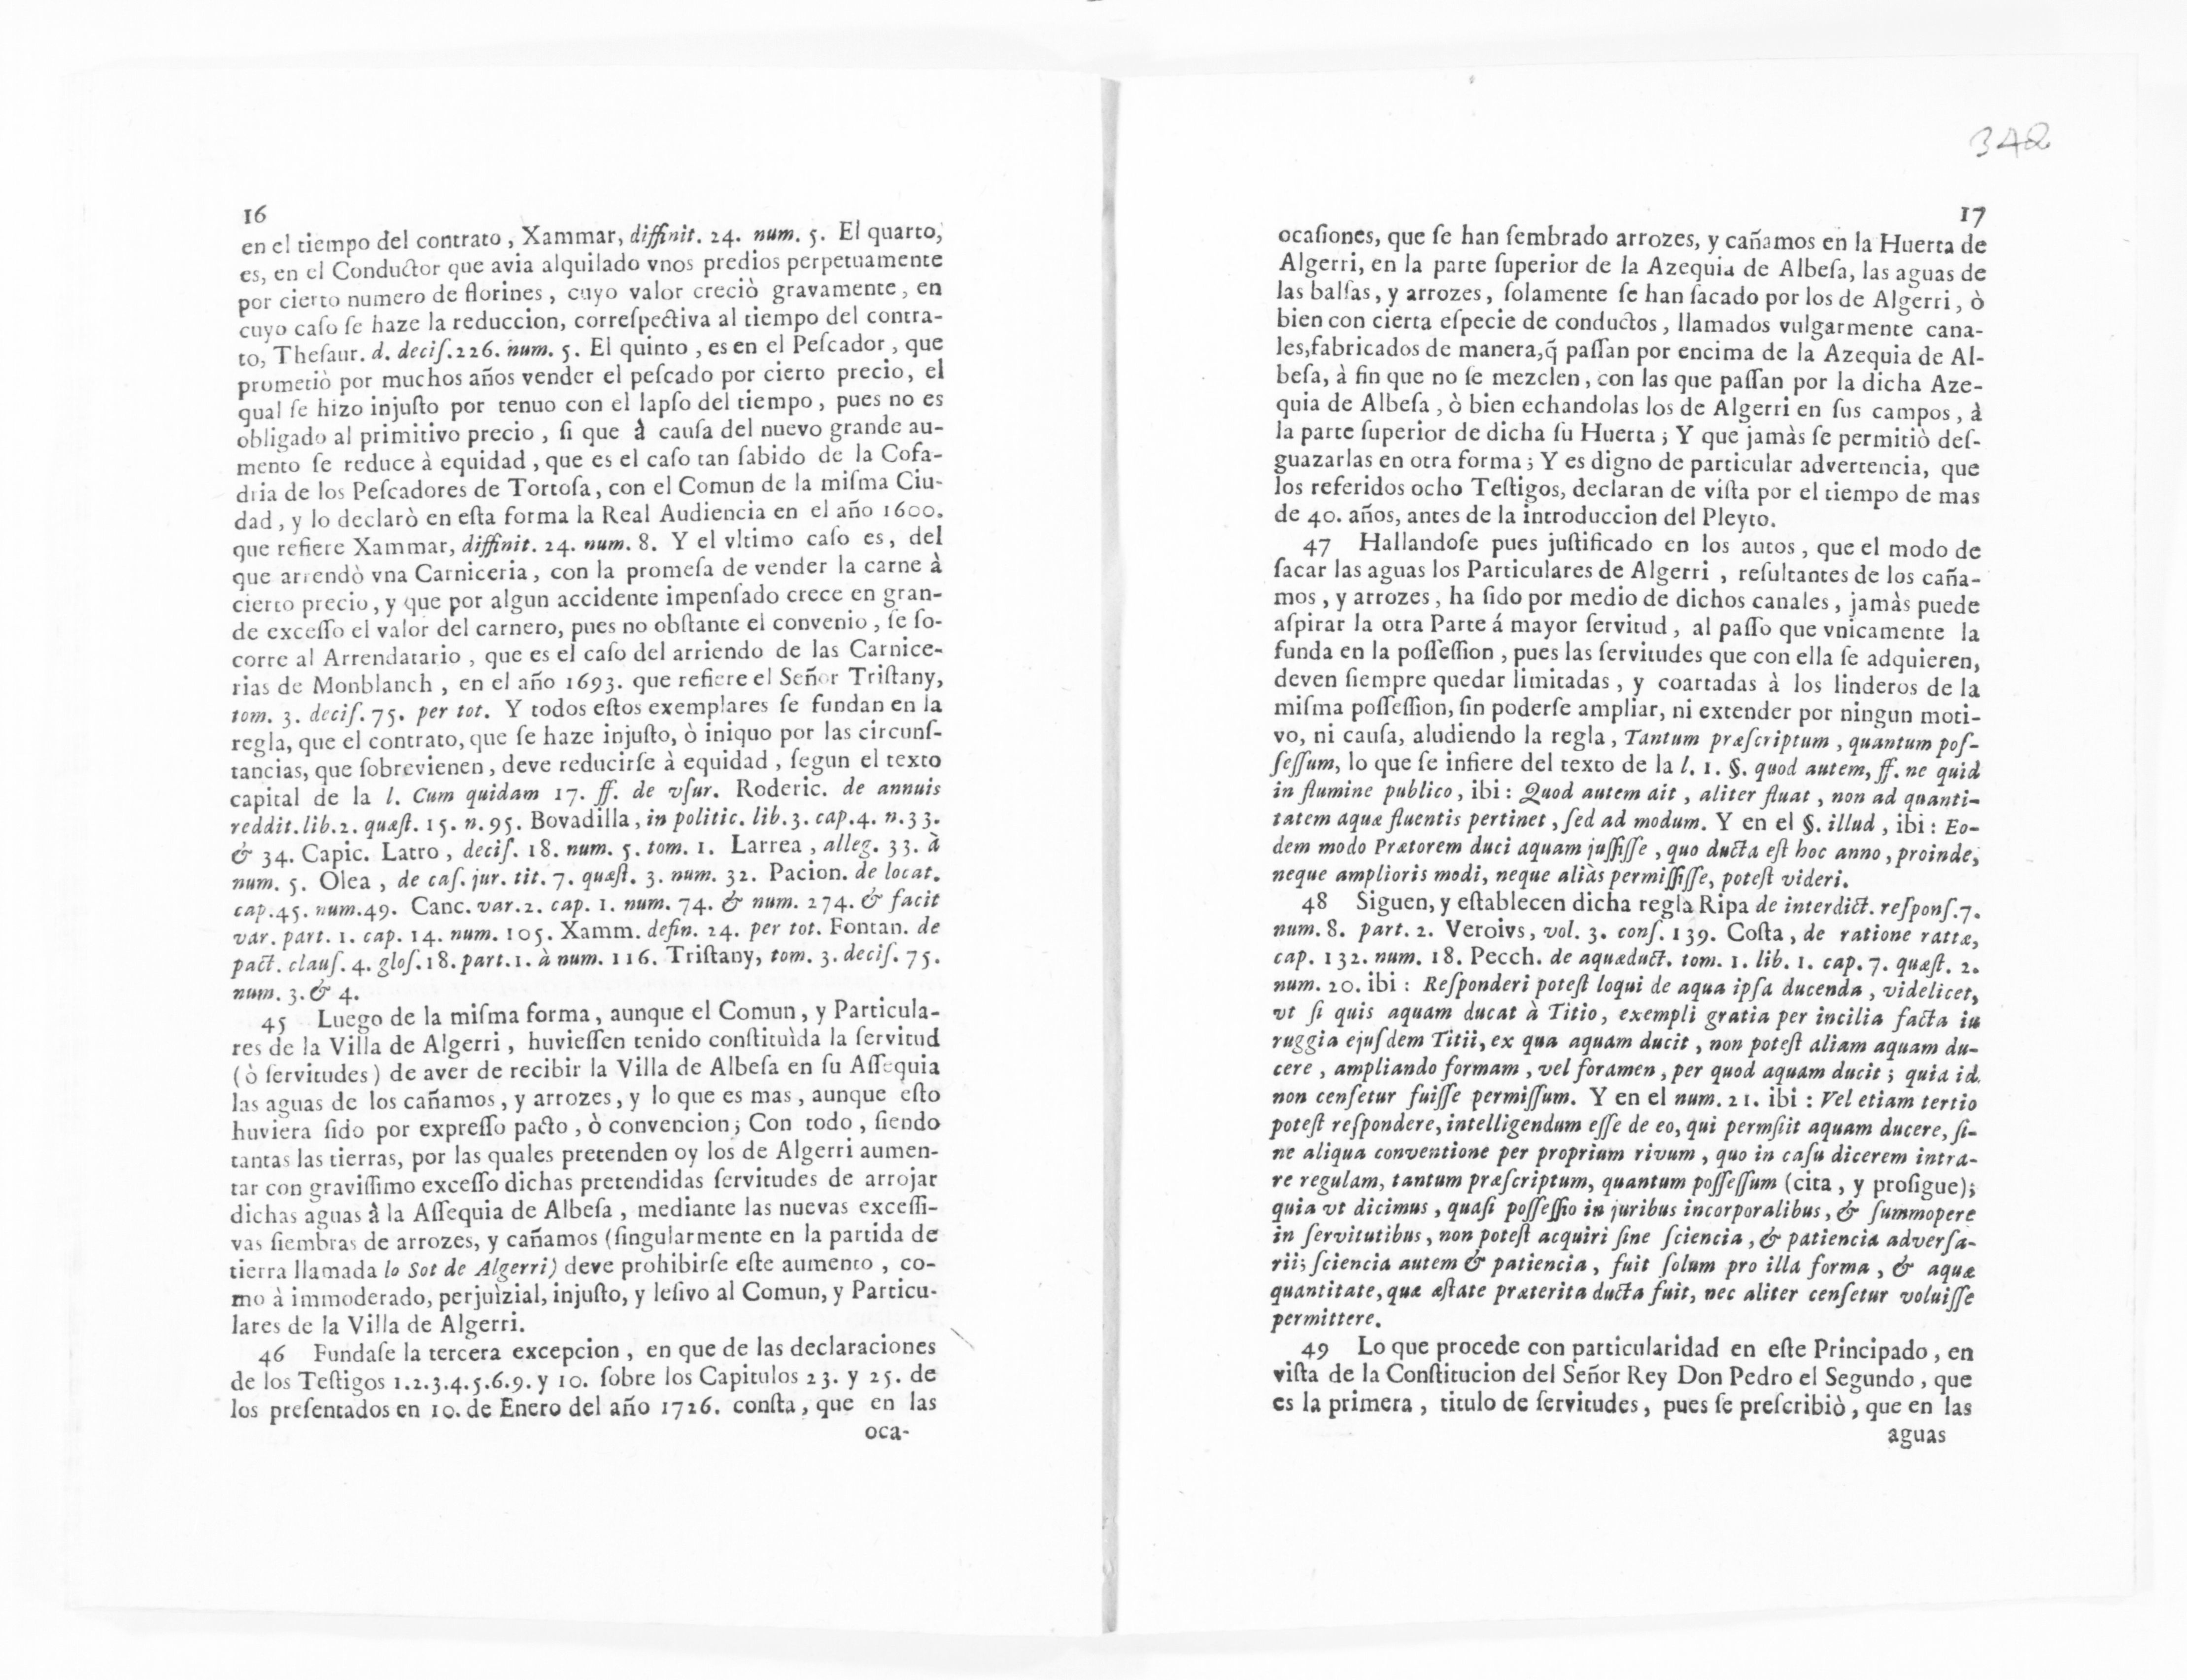 16
en el tiempo del contrato , Xammar, diffinit. 24. num. 5. El quarto,
es, en el Conductor que avia alquilado vnos predios perpetuamente
por cierto numero de florines , cuyo valor creciò gravamente , en
cuyo caſo ſe haze la reduccion, correſpectiva al tiempo del contra-
to, Theſaur. d. deciſ.226. num. 5. El quinto , es en el Peſcador , que
prometiò por muchos años vender el peſcado por cierto precio, el
qual ſe hizo injuſto por tenuo con el lapſo del tiempo , pues no es
obligado al primitivo precio , ſi que à cauſa del nuevo grande au-
mento ſe reduce à equidad , que es el caſo tan ſabido de la Cofa-
dria de los Peſcadores de Tortoſa, con el Comun de la miſma Ciu-
dad , y lo declarò en eſta forma la Real Audiencia en el año 1600.
que refiere Xammar, diffinit. 24. num. 8. Y el vltimo caſo es, del
que arrendò vna Carniceria, con la promeſa de vender la carne à
cierto precio, y que por algun accidente impenſado crece en gran-
de exceſſo el valor del carnero, pues no obſtante el convenio , ſe ſo-
corre al Arrendatario , que es el caſo del arriendo de las Carnice-
rias de Monblanch , en el año 1693. que refiere el Señor Triſtany,
tom. 3. deciſ. 75. per tot. Y todos eſtos exemplares ſe fundan en la
regla, que el contrato, que ſe haze injuſto, ò iniquo por las circunſ-
tancias, que ſobrevienen, deve reducirſe à equidad , ſegun el texto
capital de la l. Cum quidam 17. ff. de vſur. Roderic. de annuis
reddit. lib.2. quæſt. 15. n.95. Bovadilla, in politic. lib.3. cap.4. n.33.
& 34. Capic. Latro , deciſ. 18. num. 5. tom. 1. Larrea , alleg. 33. à
num. 5. Olea , de caſ. jur. tit. 7. quæſt. 3. num. 32. Pacion. de locat.
cap.45. num.49. Canc. var.2. cap. 1. num. 74. & num. 274. & facit
var. part. 1. cap. 14. num. 105. Xamm. defin. 24. per tot. Fontan. de
pact. clauſ. 4. gloſ.18.part.1. à num. 116. Triſtany, tom. 3. deciſ. 75.
num. 3. & 4.
45 Luego de la miſma forma, aunque el Comun, y Particula-
res de la Villa de Algerri , huvieſſen tenido conſtituìda la ſervitud
(ò ſervitudes) de aver de recibir la Villa de Albeſa en ſu Aſſequia
las aguas de los cañamos, y arrozes, y lo que es mas , aunque eſto
huviera ſido por expreſſo pacto , ò convencion; Con todo , ſiendo
tantas las tierras, por las quales pretenden oy los de Algerri aumen-
tar con graviſſimo exceſſo dichas pretendidas ſervitudes de arrojar
dichas aguas à la Aſſequia de Albeſa , mediante las nuevas exceſſi-
vas ſiembras de arrozes, y cañamos (ſingularmente en la partida de
tierra llamada lo Sot de Algerri) deve prohibirſe eſte aumento , co-
mo à immoderado, perjuìzial, injuſto, y leſivo al Comun, y Particu-
lares de la Villa de Algerri.
46 Fundaſe la tercera excepcion , en que de las declaraciones
de los Teſtigos 1.2.3.4.5.6.9. y 10. ſobre los Capitulos 23. y 25. de
los preſentados en 10. de Enero del año 1726. conſta, que en las
oca-
342
17
ocaſiones, que ſe han ſembrado arrozes, y cañamos en la Huerta de
Algerri, en la parte ſuperior de la Azequia de Albeſa, las aguas de
las balſas, y arrozes, ſolamente ſe han ſacado por los de Algerri, ò
bien con cierta eſpecie de conductos, llamados vulgarmente cana-
les,fabricados de manera,q̃ paſſan por encima de la Azequia de Al-
beſa, à fin que no ſe mezclen, con las que paſſan por la dicha Aze-
quia de Albeſa , ò bien echandolas los de Algerri en ſus campos , à
la parte ſuperior de dicha ſu Huerta ; Y que jamàs ſe permitiò deſ-
guazarlas en otra forma ; Y es digno de particular advertencia, que
los referidos ocho Teſtigos, declaran de viſta por el tiempo de mas
de 40. años, antes de la introduccion del Pleyto.
47 Hallandoſe pues juſtificado en los autos , que el modo de
ſacar las aguas los Particulares de Algerri , reſultantes de los caña-
mos , y arrozes , ha ſido por medio de dichos canales , jamàs puede
aſpirar la otra Parte á mayor ſervitud , al paſſo que vnicamente la
funda en la poſſeſſion , pues las ſervitudes que con ella ſe adquieren,
deven ſiempre quedar limitadas , y coartadas à los linderos de la
miſma poſſeſſion, ſin poderſe ampliar, ni extender por ningun moti-
vo, ni cauſa, aludiendo la regla , Tantum præſcriptum , quantum poſ-
ſeſſum, lo que ſe infiere del texto de la l. 1. §. quod autem, ff. ne quid
in flumine publico, ibi: Quod autem ait , aliter fluat , non ad quanti-
tatem aquæ fluentis pertinet , ſed ad modum. Y en el §. illud , ibi : Eo-
dem modo Prætorem duci aquam juſſiſſe , quo ducta eſt hoc anno , proinde,
neque amplioris modi, neque aliàs permiſſiſſe, poteſt videri.
48 Siguen, y eſtablecen dicha regla Ripa de interdict. reſponſ.7.
num. 8. part. 2. Veroivs, vol. 3. conſ. 139. Coſta , de ratione rattæ,
cap. 132. num. 18. Pecch. de aquæduct. tom. 1. lib. 1. cap. 7. quæſt. 2.
num. 20. ibi : Reſponderi poteſt loqui de aqua ipſa ducenda , videlicet,
vt ſi quis aquam ducat à Titio, exempli gratia per incilia facta in
ruggia ejuſdem Titii, ex qua aquam ducit , non poteſt aliam aquam du-
cere , ampliando formam , vel foramen , per quod aquam ducit ; quia id
non cenſetur fuiſſe permiſſum. Y en el num. 21. ibi : Vel etiam tertio
poteſt reſpondere, intelligendum eſſe de eo, qui permſiit aquam ducere, ſi-
ne aliqua conventione per proprium rivum , quo in caſu dicerem intra-
re regulam, tantum præſcriptum, quantum poſſeſſum (cita , y proſigue);
quia vt dicimus , quaſi poſſeſſio in juribus incorporalibus, & ſummopere
in ſervitutibus , non poteſt acquiri ſine ſciencia , & patiencia adverſa-
rii; ſciencia autem & patiencia , fuit ſolum pro illa forma , & aquæ
quantitate, quæ æſtate præterita ducta fuit, nec aliter cenſetur voluiſſe
permittere.
49 Lo que procede con particularidad en eſte Principado , en
viſta de la Conſtitucion del Señor Rey Don Pedro el Segundo , que
es la primera , titulo de ſervitudes, pues ſe preſcribiò, que en las
aguas